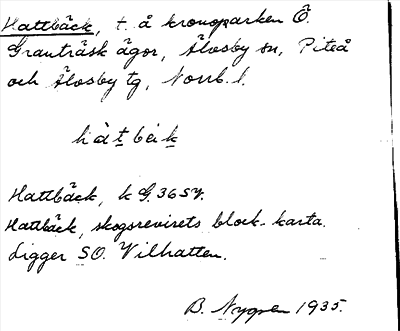 Hattbäck, t. å kronoparken Ö.
Granträsk ägor, Älvsby sn, Piteå
och Älvsby tg, Norrb. l.
Hattbäck, k G. 36 SV.
Hattbäck, skogsrevirets block-karta.
Ligger SO. Vilhatten.
B. Nygren 1935.